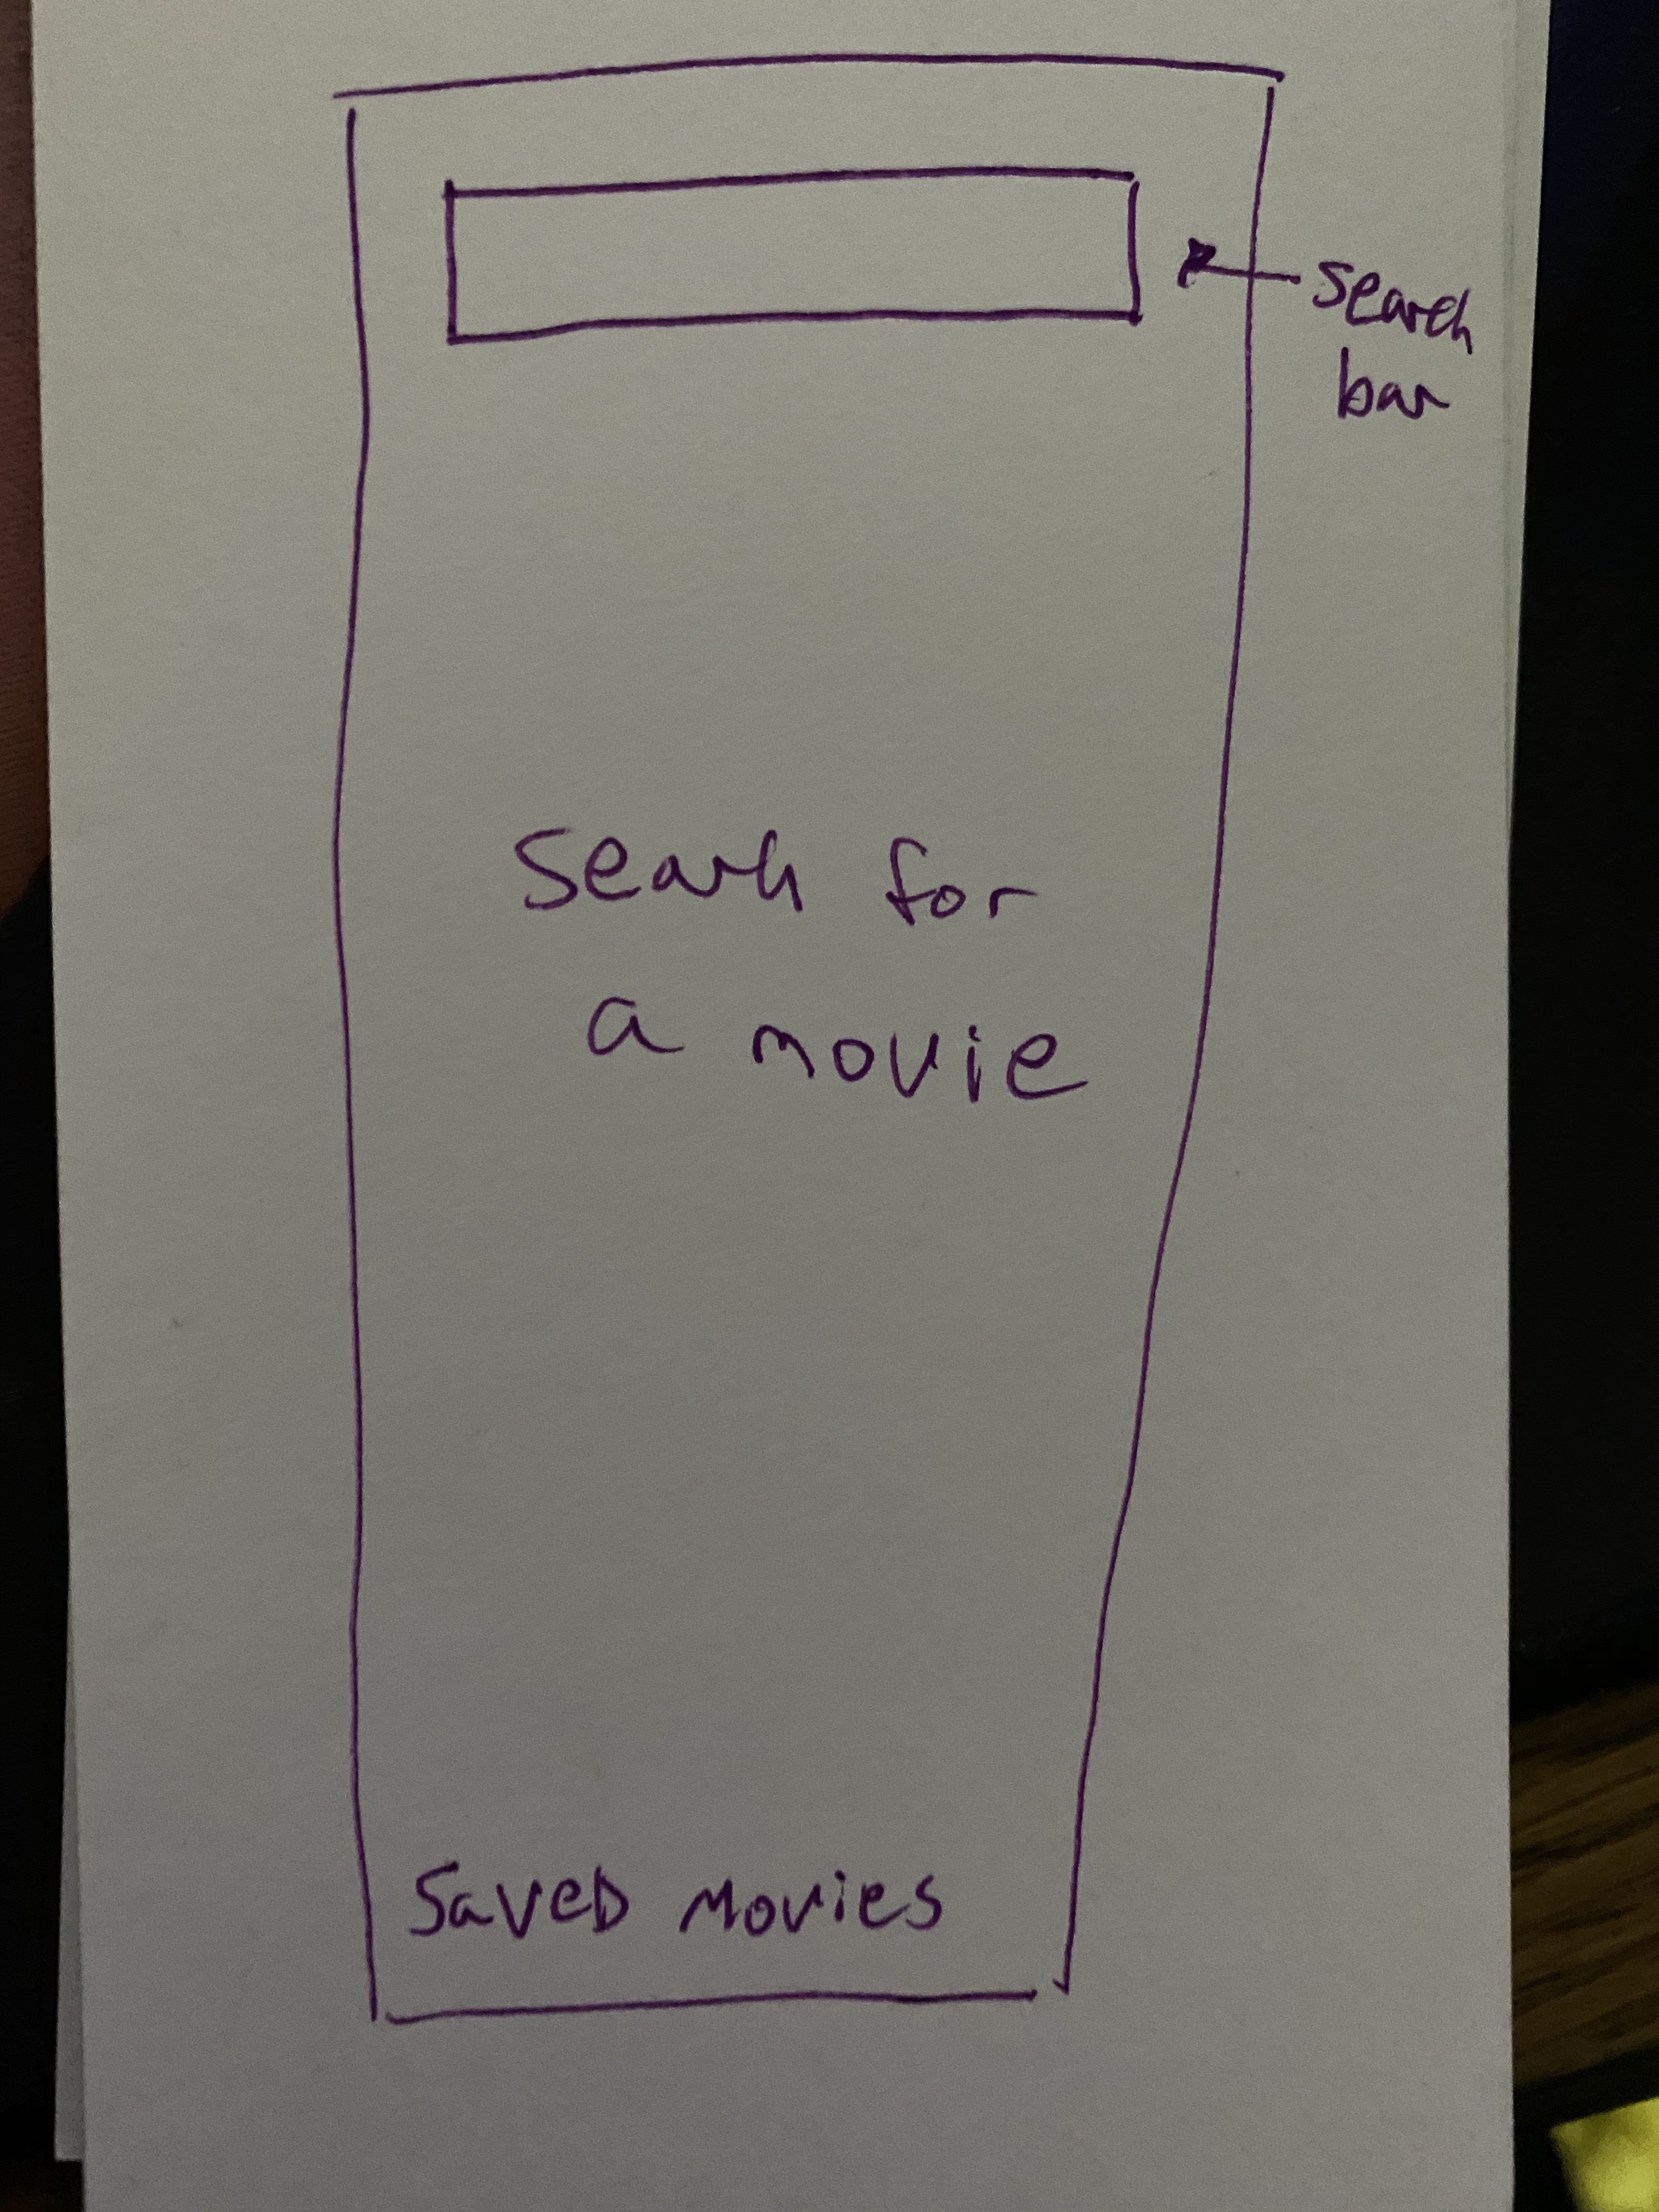 search
bar
Search for
a movie
Saved movies